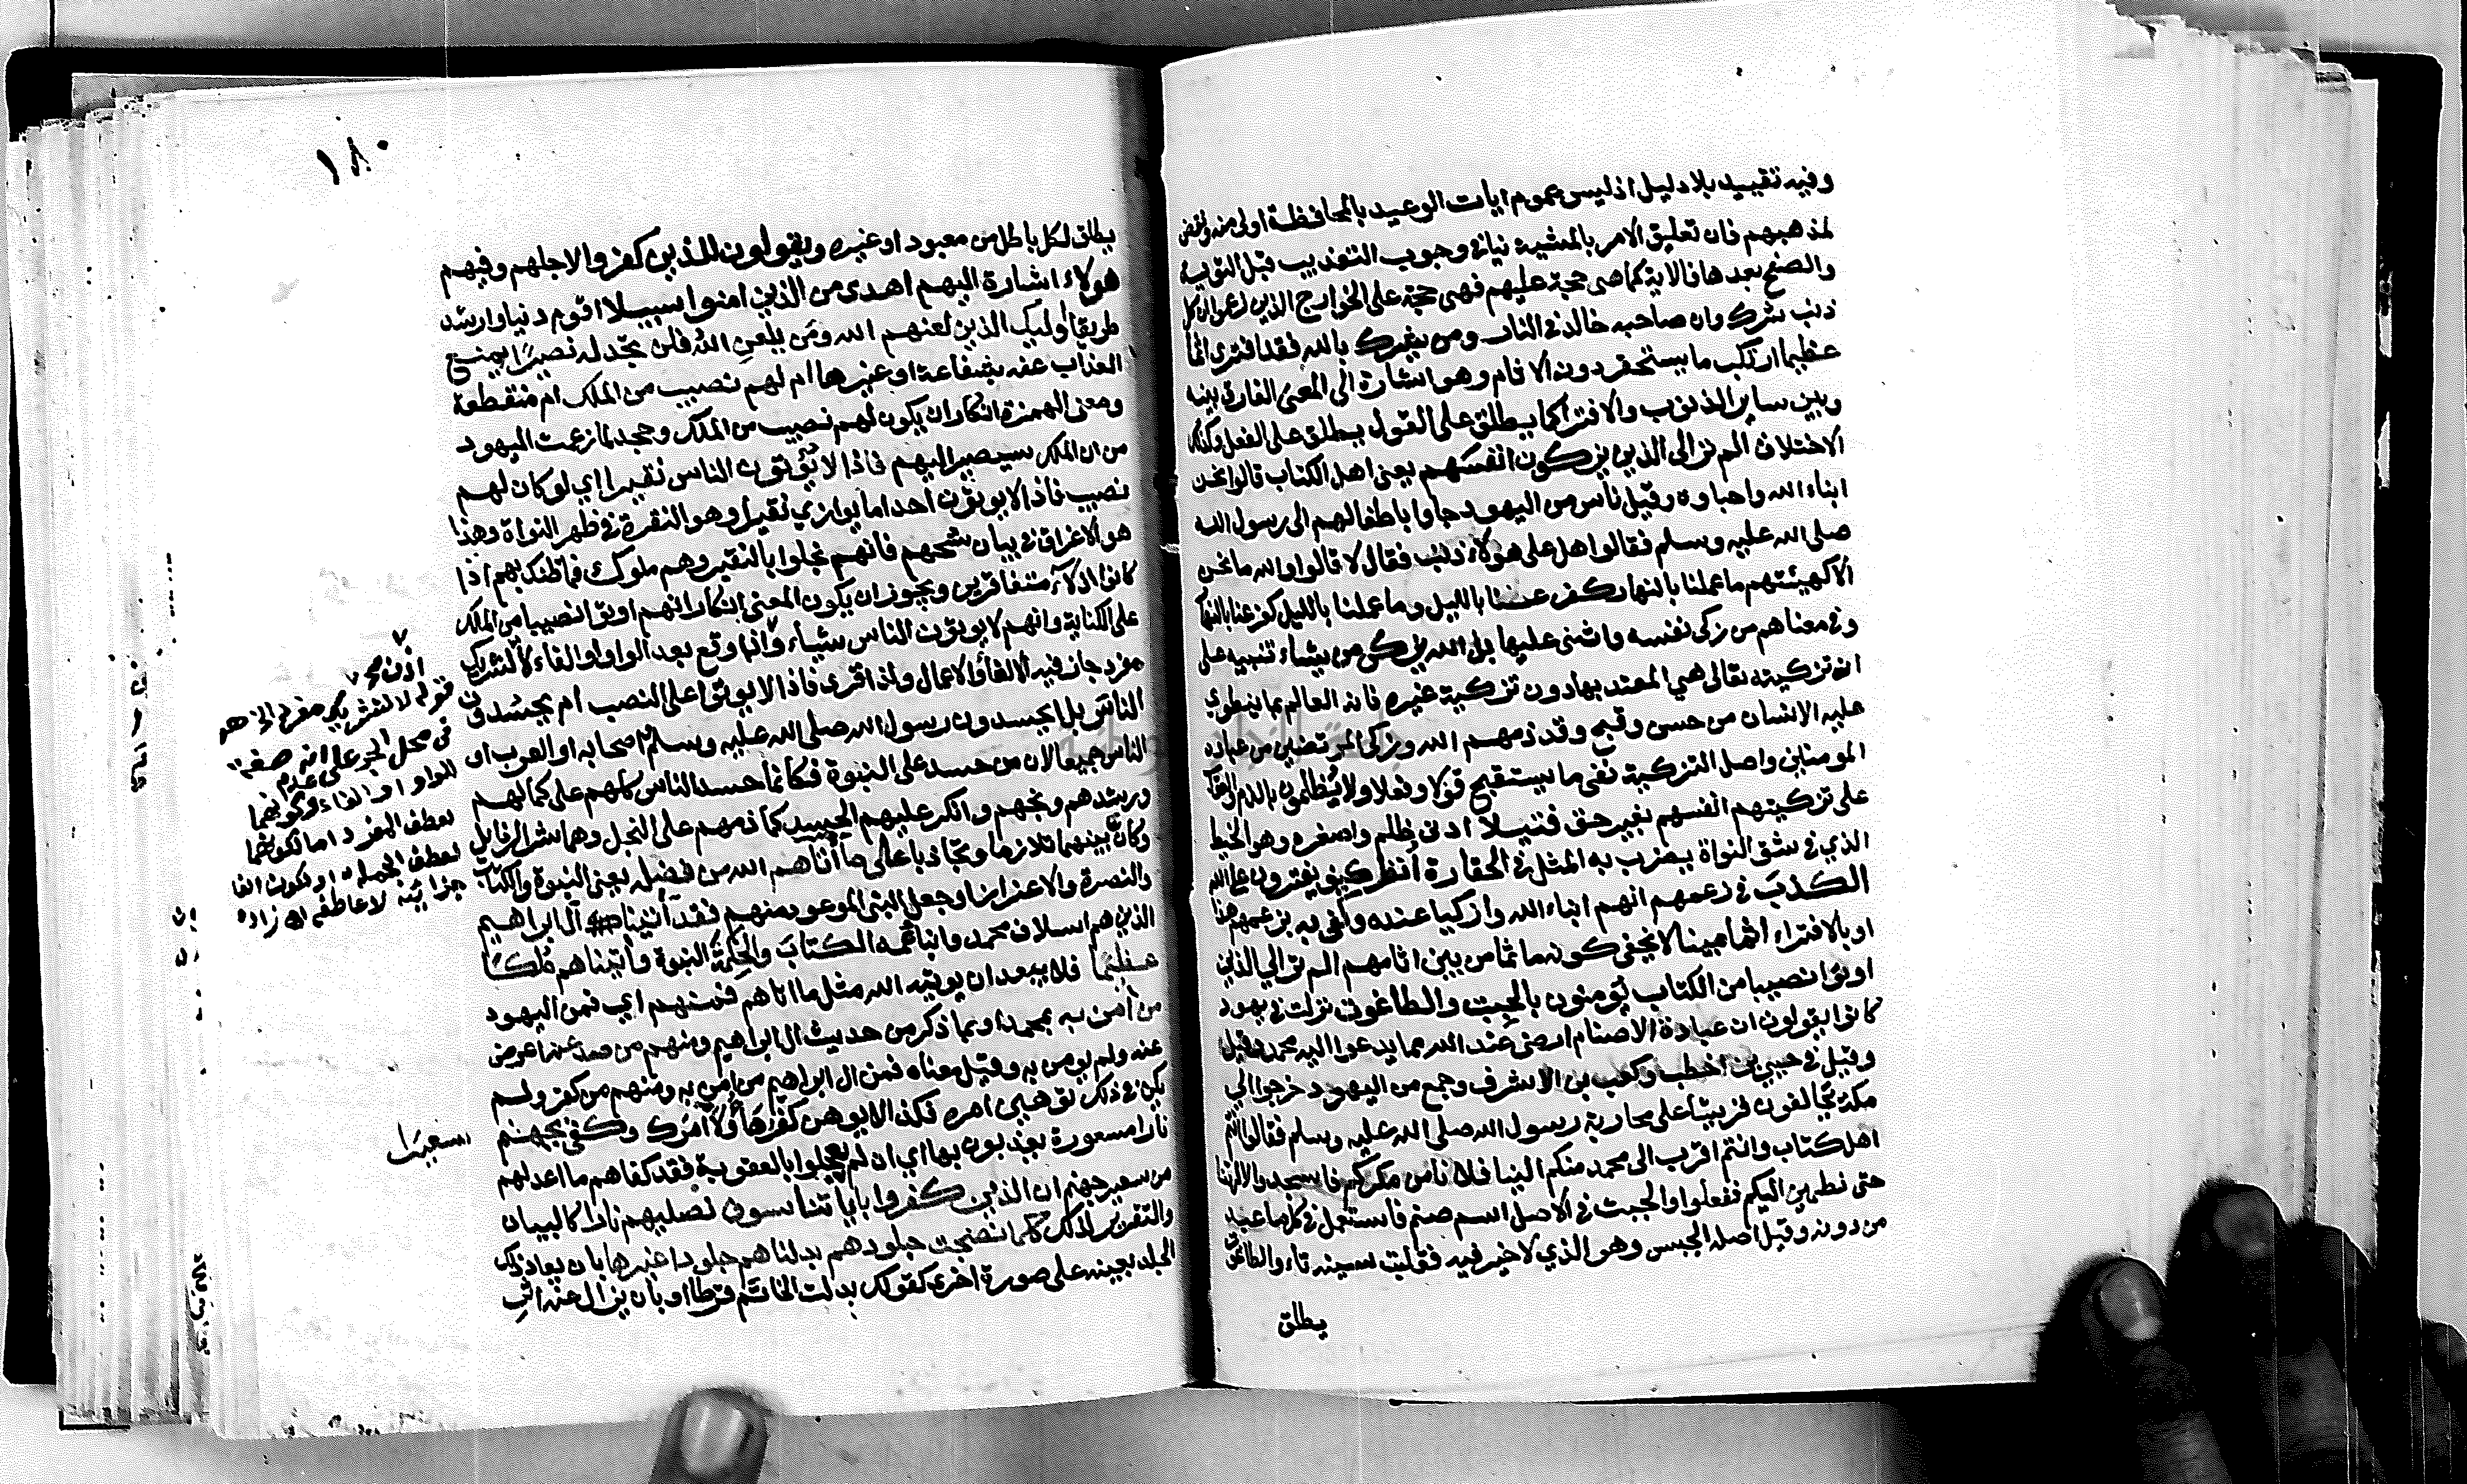 وفيه تقييد بلا دليل اذ ليس عموم ايات الوعيد بالمحافظة اولى منه ونقض
لمذهبهم فان تعليق الامر بالمشية ينافي وجوب التعذيب قبل التوبة
والصفح بعدها فالاية كما هي حجة عليهم فهي حجة على الخوارج الذين زعموا ان كل
ذنب شرك وان صاحبه خالد في النار ومن يشرك بالله فقد افترى اثما
عظيما ارتكب ما يستحقر دونه الاثام وهو اشارة الى المعنى الفارق بينه
وبين ساير الذنوب والافترا كما يطلق على القول يطلق على الفعل وكذلك
الاختلاق الم تر الى الذين يزكون انفسهم يعني اهل الكتاب قالوا نحن
ابناء الله واحباوه وقيل ناس من اليهود جاوا باطفالهم الى رسول الله
صلى الله عليه وسلم فقالوا هل على هولاء ذنب فقال لا قالوا والله ما نحن
الا كهيئتهم ما عملنا بالنهار كفر عنا بالليل وما عملنا بالليل كفر عنا بالنهار
وفي معناهم من زكى نفسه واثنى عليها بل الله يزكي من يشاء تنبيه على
ان تزكيته تعالى هي المعتد بها دون تزكية غيره فانه العالم بما ينطوي
عليه الانسان من حسن وقبح وقد ذمهم الله وزكى المرتضين من عباده
المومنين واصل التزكية نفي ما يستقبح قولا وفعلا ولا يظلمون بالذم والعقاب
على تزكيتهم انفسهم بغير حق فتيلا ادنى ظلم واصغره وهو الخيط
الذي في شق النواة يضرب به المثل في الحقارة انظر كيف يفترون على الله
الكذب في زعمهم انهم ابناء الله وازكيا عنده وكفى به بزعمهم هذا
او بالافتراء اثما مبينا لا يخفى كونه ماثما من بين اثامهم الم تر الي الذين
اوتوا نصيبا من الكتاب يؤمنون بالجبت والطاغوت نزلت في يهود
كانوا يقولون ان عبادة الاصنام ارضى عند الله مما يدعوا اليه محمد وقيل
وقيل في حيي بن اخطب وكعب بن الاشرف وجمع من اليهود خرجوا الي
مكة يحالفون قريشا على محاربة رسول الله صلى الله عليه وسلم فقالوا انتم
اهل كتاب وانتم اقرب الى محمد منكم الينا فلا نامن مكركم فاسجدوا لالهتنا
حتى نطمين اليكم ففعلوا والجبت في الاصل اسم صنم فاستعمل في كل ما عبد
من دونه وقيل اصله الجبس وهو الذي لا خير فيه فقلبت سينه تاء والطاغوت
يطلق
١٨٠
يطلق لكل باطل من معبود او غيره ويقولون للذين كفروا لاجلهم وفيهم
هولاء اشارة اليهم اهدى من الذين امنوا سبيلا اقوم دنيا وارشد
طريقا اوليك الذين لعنهم الله ومن يلعن الله فلن تجد له نصيرا يمنع
العذاب عنه بشفاعة او غيرها ام لهم نصيب من الملك ام منقطعة
ومعنى الهمزة انكار ان يكون لهم نصيب من الملك وجحد لما زعمت اليهود
من ان الملك سيصير اليهم فاذا لا يؤتون الناس نقيرا اي لو كان لهم
نصيب فاذا لا يوتون احدا ما يوازي نقيرا وهو النقرة في ظهر النواة وهذا
هو الاغراق في بيان شحهم فانهم بخلوا بالنقير وهم ملوك فما ظنك بهم اذا
كانوا اذلاء متفاقرين ويجوز ان يكون المعنى انكار انهم اوتوا نصيبا من الملك
على الكناية وانهم لا يوتون الناس شيا واذا وقع بعد الواو او الفاء لا لتشريك
مفرد جاز فيه الالغا والاعمال ولذا قرى فاذا لا يوتوا على النصب ام يحسدون
الناس بل ايحسدون رسول الله صلى الله عليه وسلم واصحابه او العرب او
الناس جميعا لان من حسد على النبوة فكانما حسد الناس كلهم على كمالهم
ورشدهم وبخهم وانكر عليهم الحسد كما ذمهم على البخل وهما شر الرذايل
وكان بينهما تلازما وتجاذبا على ما اتاهم الله من فضله يعني النبوة والكتاب
والنصرة والاعزاز وجعل النبي الموعود منهم فقد آتينا آل ابراهيم
الذين هم اسلاف محمد وابنا عمه الكتاب والحكمة النبوة واتيناهم ملكا
عظيما فلا يبعد ان يوتيه الله مثل ما اتاهم فمنهم اي فمن اليهود
من آمن به بمحمد او بما ذكر من حديث ال ابراهيم ومنهم من صد عنه اعرض
عنه ولم يومن به وقيل معناه فمن ال ابراهيم من امن به ومنهم من كفر ولم
يكن في ذلك توهين امره فكذا لا يوهن كفر هؤلاء امرك وكفى بجهنم
نارا مسعورة يعذبون بها اي ان لم يعجلوا بالعقوبة فقد كفاهم ما اعد لهم
من سعير جهنم ان الذين كفروا باياتنا سوف نصليهم نارا كالبيان
والتقرير لذلك كلما نضجت جلودهم بدلناهم جلودا غيرها بان يعاد ذلك
الجلد بعينه على صورة اخرى كقولك بدلت الخاتم قرطا او بان يزال عنه اثر
قوله لا لتشريك مفرد الخ هو
في محل الجر على انه صفة
للواو او الفاء وكونهما
لعطف المفرد اما لكونهما
لعطف الجملة او لكون الفا
جزائية لا عاطفة اه زاده
سعيرا